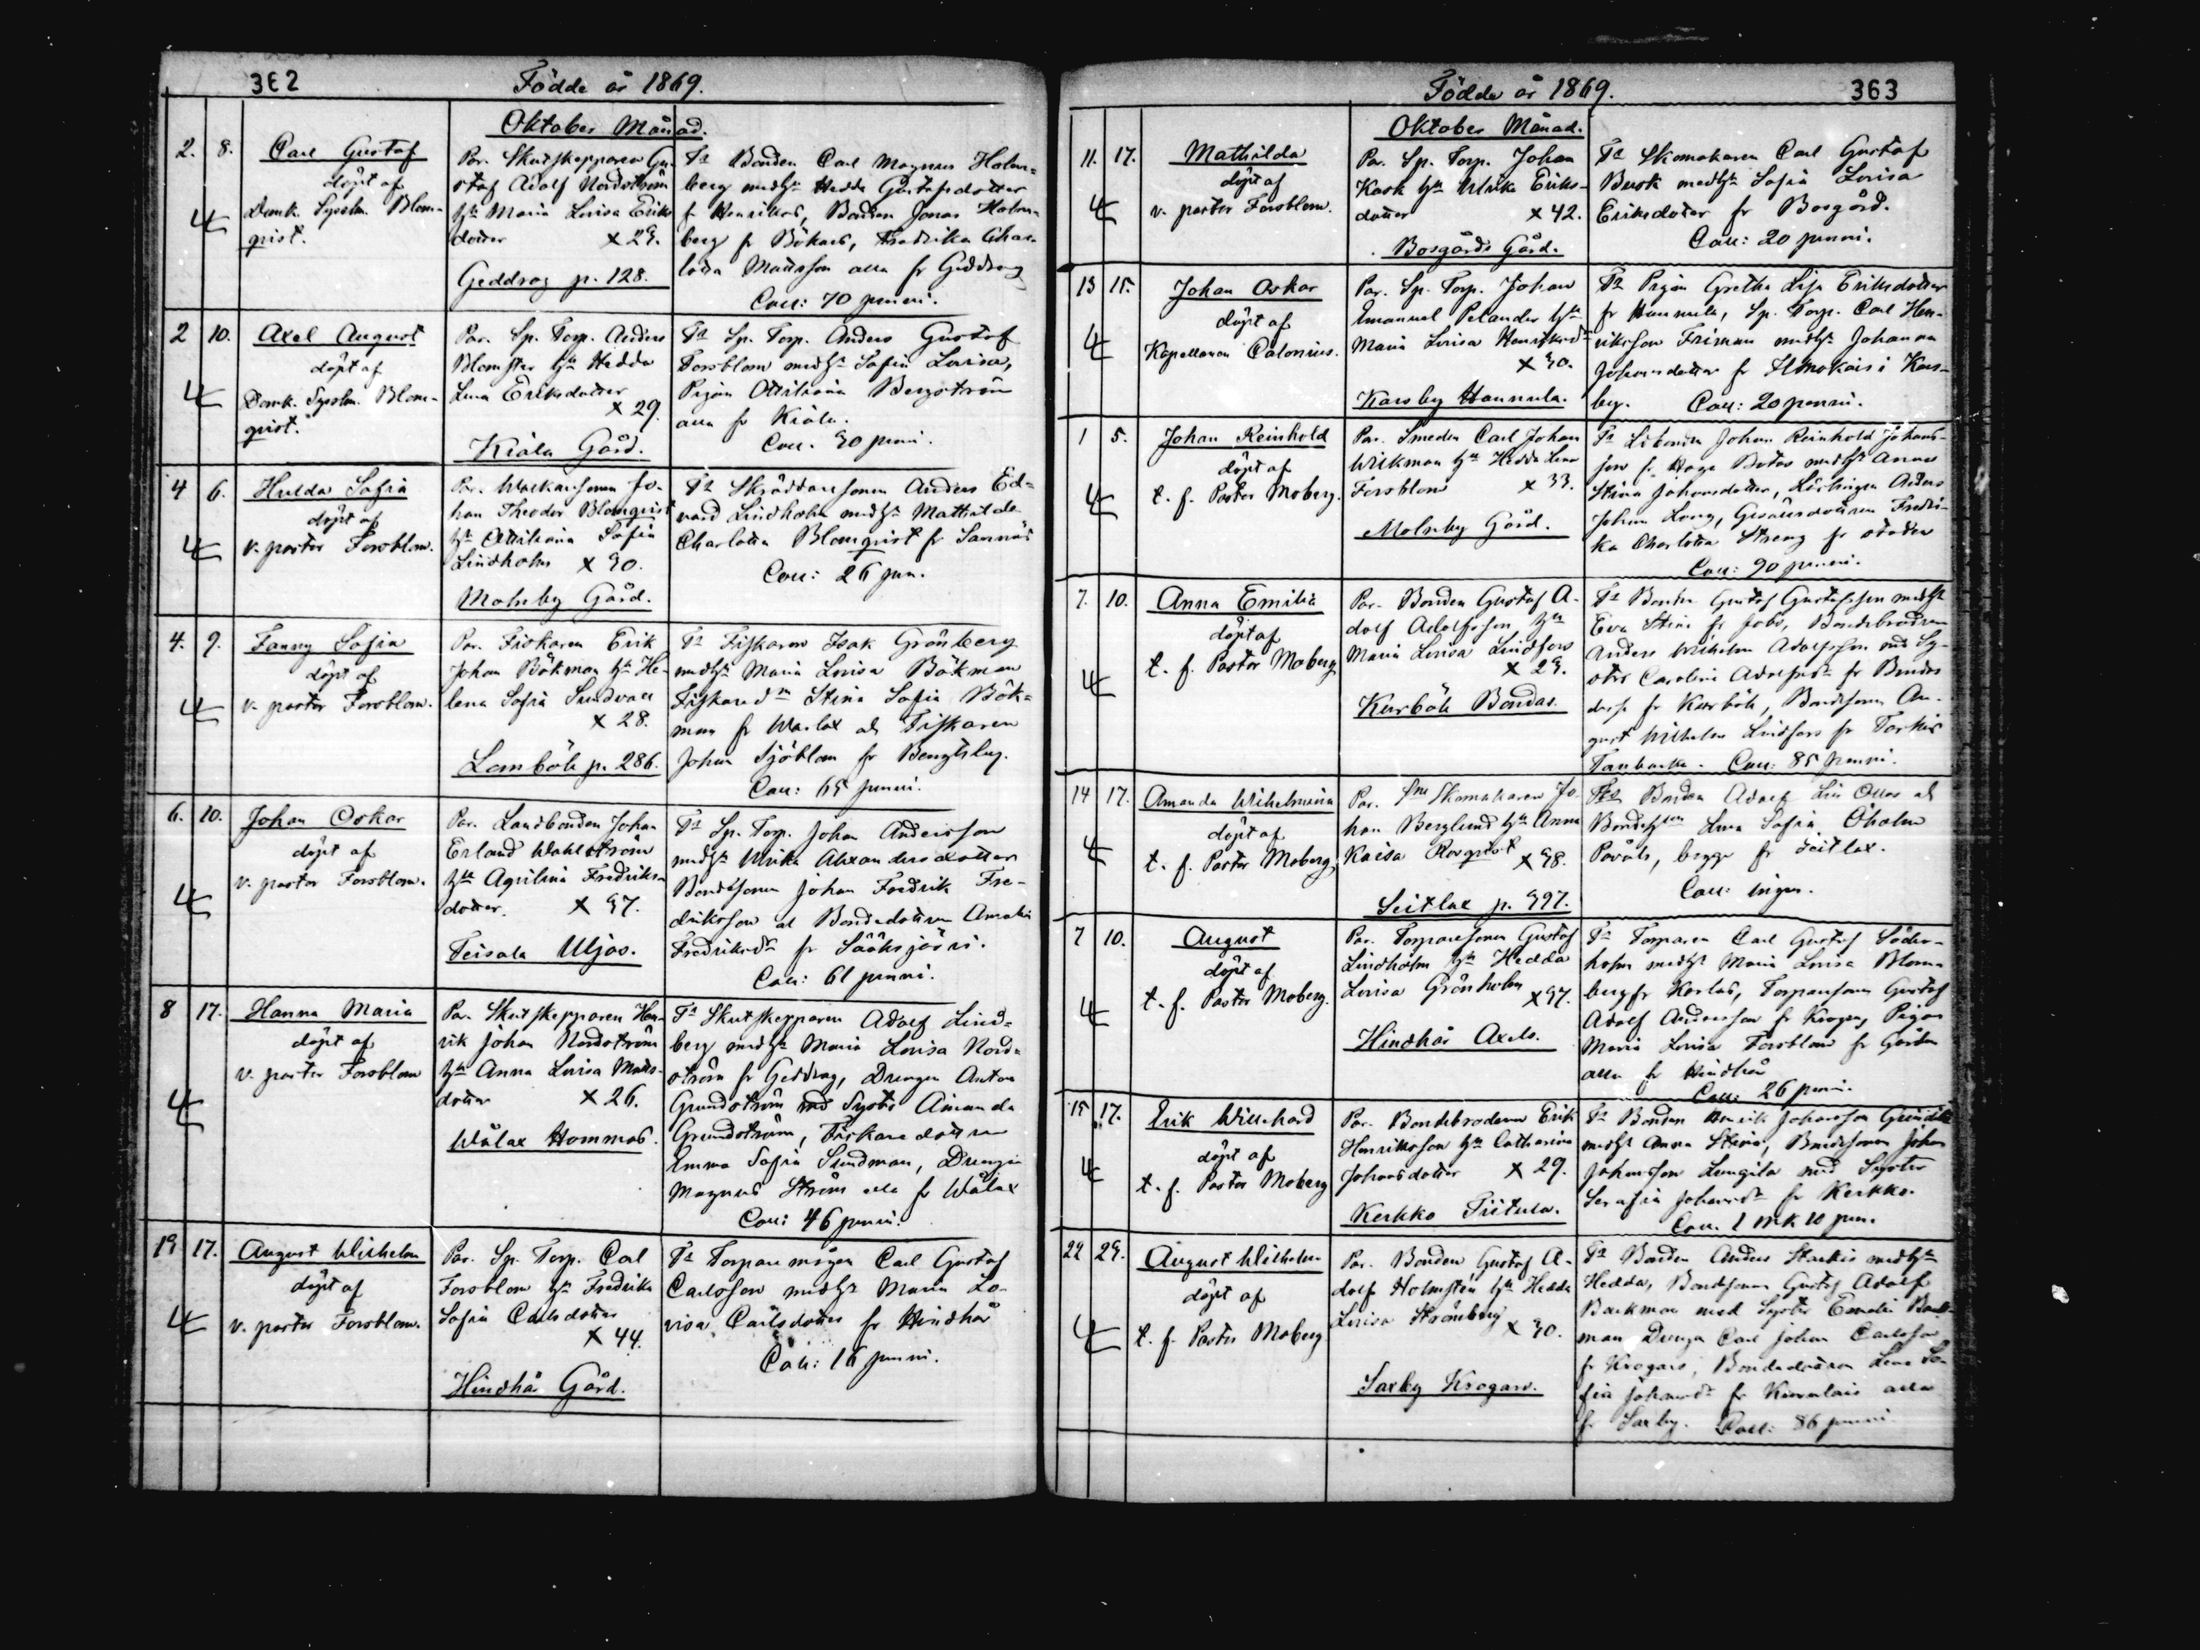 362
Födde år 1869.
Oktober Månad.
2. 8. Carl Gustaf
döpt af
Domk. Syssln. Blom-
qvist.
Par. Skutskepparen Gu-
staf Adolf Nordström
hu Maria Lovisa Eriks
dotter × 29.
Geddrag p. 128.
Fr Bonden Carl Magnus Holm-
berg med hu Hedda Gustafsdotter
fr Henrikas, Bonden Jonas Holm-
berg fr Bökars, Fredrika Char-
lotta Mattsson alla fr Geddrag
Coll: 70 penni.
2 10. Axel August
döpt af
Domk. Syssln. Blom-
qvist.
Par. Sp. Torp. Anders
Blomster hu Hedda
Lena Eriksdotter
× 29.
Kiala Gård.
Fr Sp. Torp. Anders Gustaf
Forsblom med hu Sofia Lovisa,
Pigan Ottiliana Bergström
alla fr Kiala.
Coll. 30 penni.
4 6. Hulda Sofia
döpt af
v. pastor Forsblom.
Par. Jo-
han Theodor Blomqvist
hu Ottiliana Sofia
Lindholm × 30.
Molnby Gård.
Fr Skräddaresonen Anders Ed-
vard Lindholm med hu Mathilda
Charlotta Blomqvist fr Sannäs
Coll: 26 pen.
4. 9. Fanny Sofia
döpt af
v. pastor Forsblom.
Par. Fiskaren Erik
Johan Bökman hu He-
lena Sofia Sundvall
× 28.
Lomböle p. 286.
Fr Fiskaren Isak Grönberg
med hu Maria Lovisa Bökman
Stina Sofia Bök-
man fr Warlax och Fiskaren
Johan Sjöblom fr Bengtsby.
Coll: 65 penni.
6. 10. Johan Oskar
döpt af
v. pastor Forsblom.
Par. Landbonden Johan
Erland Wahlström
hu Aqvilina Fredriks-
dotter. × 37.
Teisala Uljas.
Fr Sp. Torp. Johan Andersson
med hu Ulrika Alexandersdotter
Bondesonen Johan Fredrik Fre-
driksson och Bondedottren Amalia
Fredriksdr fr Sääksjärvi.
Coll: 61 penni.
8 17. Hanna Maria
döpt af
v. pastor Forsblom
Par. Skutskepparen Hen-
rik Johan Nordström
hu Anna Lovisa Matts-
dotter × 26.
Wålax Hommas.
Fr Skutskepparen Adolf Lind-
berg med hu Maria Lovisa Nord-
ström fr Geddrag, Drengen Anton
Grundström med Syster Amanda
Grundström, Fiskaredottren
Emma Sofia Sundman, Drengen
Magnus Ström alla fr Wålax
Coll: 46 penni.
19 17. August Wilhelm
döpt af
v. pastor Forsblom.
Par. Sp. Torp. Carl
Forsblom hu Fredrika
Sofia Carlsdotter
× 44.
Hindhår Gård.
Fr Torpare mågen Carl Gustaf
Carlsson med hu Maria Lo-
visa Carlsdotter fr Hindhår
Coll: 16 penni.
Födde år 1869.
363
Oktober Månad.
11. 17. Mathilda
döpt af
v. pastor Forsblom.
Par. Sp. Torp. Johan
Kask hu Ulrika Eriks-
dotter × 42.
Bosgårds Gård.
Fr Skomakaren Carl Gustaf
Busk med hu Sofia Lovisa
Eriksdotter fr Bosgård.
Coll: 20 penni.
13 15. Johan Oskar
döpt af
Kapellanen Calonius.
Par. Sp. Torp. Johan
Emanuel Pelander hu
Maria Lovisa Henriksdr
× 30.
Karsby Hannula.
Fr Pigan Gretha Lisa Eriksdotter
fr Hannula, Sp. Torp. Carl Hen-
riksson Friman med hu Johanna
Johansdotter fr i Kars-
by. Coll: 20 penni.
1 5. Johan Reinhold
döpt af
t. f. Pastor Moberg.
Par. Smeden Carl Johan
Wikman hu Hedda Lena
Forsblom × 33.
Molnby Gård.
Fr Johan Reinhold Johans-
son fr med hu Anna
Stina Johansdotter, Anders
Johan Long, Fredri-
ka Charlotta Streng fr staden
Coll: 90 penni.
7. 10. Anna Emilia
döpt af
t. f. Pastor Moberg
Par. Bonden Gustaf A-
dolf Adolfsson, hu
Maria Lovisa Lindfors
× 29.
Kurböle Bondas.
Fr Bonden Gustaf Gustafsson med hu
Eva Stina fr Jobs, Bondebrodren
Anders Wilhelm Adolfsson med Sy-
ster Carolina Adolfsdr fr Bondas
fr Kurböle, Bondesonen Au-
gust Wilhelm Lindfors fr
Coll: 85 penni.
14 17. Amanda Wilhelmina
döpt af
t. f. Pastor Moberg
Par. Skomakaren Jo-
han Berglund hu Anna
Kaisa × 38.
Seitlax p. 397.
Fr Bonden Adolf och
Lena Sofia Öholm
begge fr Seitlax.
Coll: ingen.
7 10. August
döpt af
t. f. Pastor Moberg.
Par. Torparesonen Gustaf
Lindholm hu Hedda
Lovisa Grönholm
× 37.
Hindhår Axels.
Fr Torparen Carl Gustaf Söder-
holm med hu Maria Lovisa Blom-
berg fr Torparesonen Gustaf
Adolf Andersson fr Pigan
Maria Lovisa Forsblom fr Gården
alla fr Hindhår
Coll: 26 penni.
15 17. Erik Willehard
döpt af
t. f. Pastor Moberg
Par. Bondebrodren Erik
Henriksson hu Catharina
Johansdotter × 29.
Kerkko Tiitula.
Fr Bonden Henrik Johansson
med hu Anna Stina, Bondesonen Johan
Johansson med Syster
Serafia Johansdr fr Kerkko.
Coll. 1 mk 10 pen.
22 29. August Wilhelm
döpt af
t. f. Pastor Moberg
Par. Bonden, Gustaf A-
dolf Holmsten hu Hedda
Lovisa Strömberg
× 30.
Saxby Krogars.
Fr Bonden Anders med hu
Hedda, Bondsonen Gustaf Adolf
Backman med Syster Back-
man Drengen Carl Johan Carlsson
fr Krogars, Bondedottren Lena So-
fia Johansdr fr alla
fr Saxby. Coll: 86 penni.